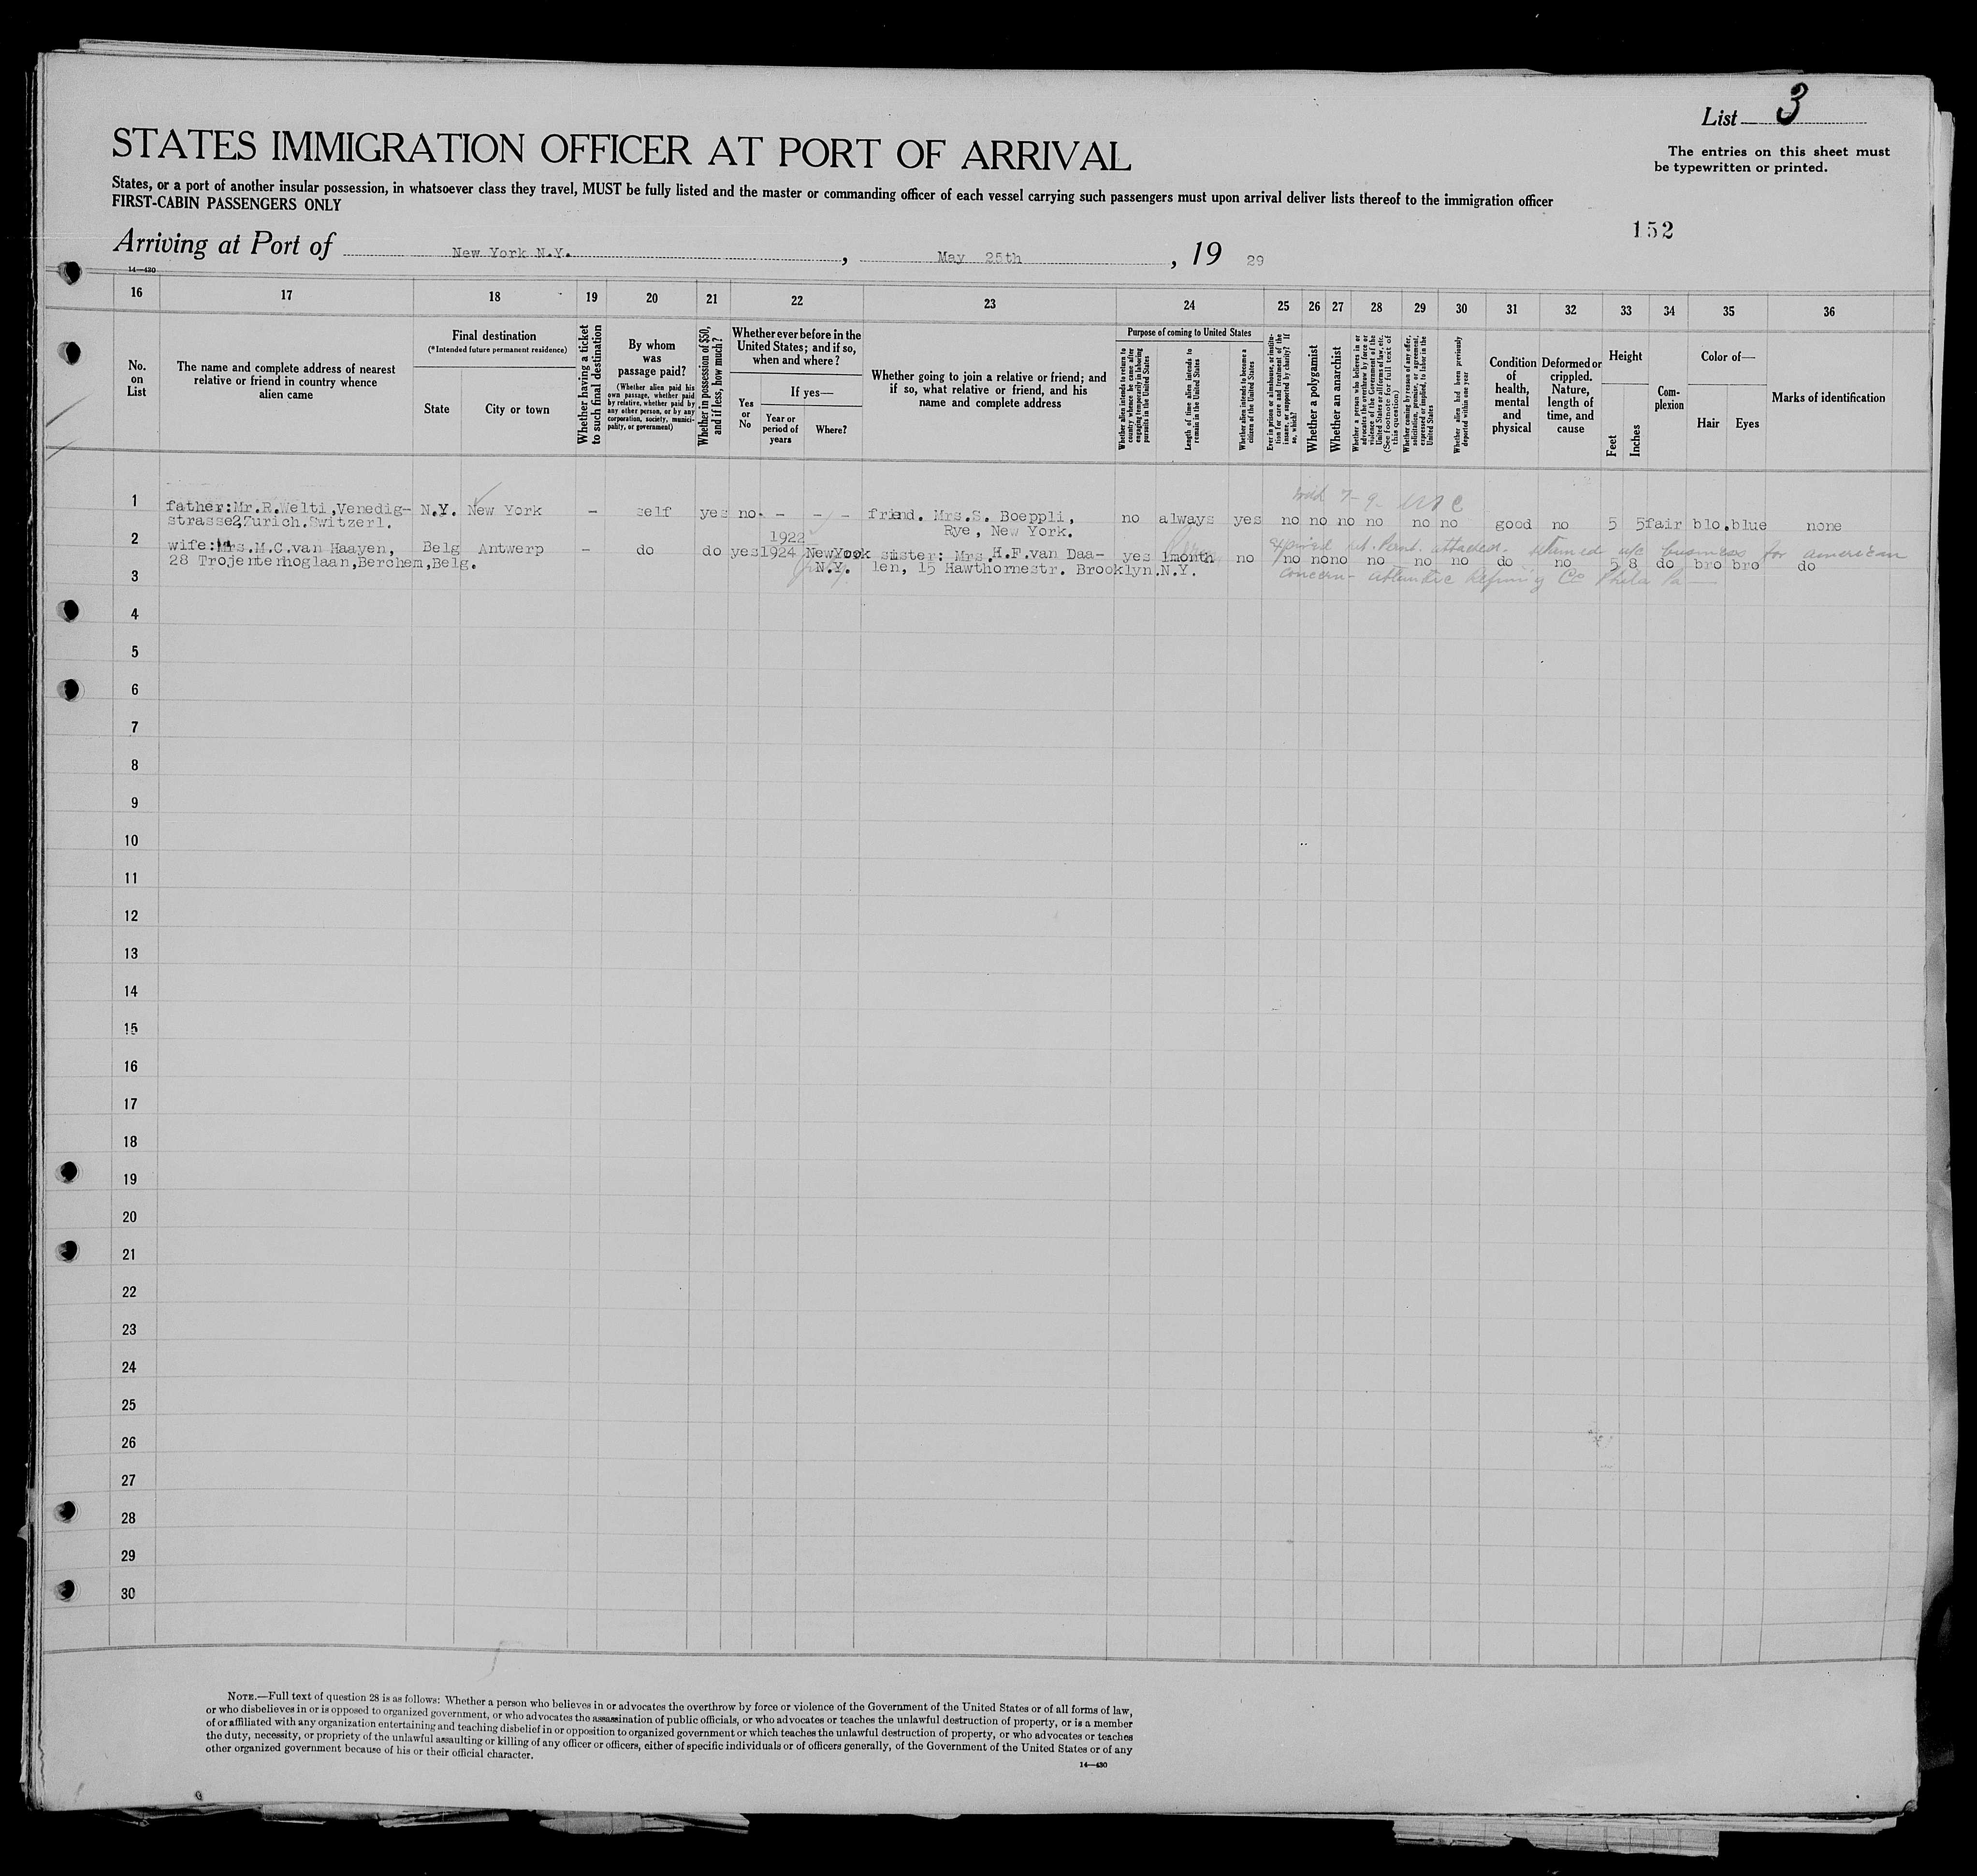 List 3
The entries on this sheet must
be typewritten or printed.
STATES IMMIGRATION OFFICER AT PORT OF ARRIVAL
States, or a port of another insular possession, in whatsoever class they travel, MUST be fully listed and the master or commanding officer of each vessel carrying such passengers must upon arrival deliver lists thereof to the immigration officer
FIRST-CABIN PASSENGERS ONLY
152
Arriving at Port of New York N.Y., May 25th, 19 29
14—430
16 17 18 19 20 21 22 23 24 25 26 27 28 29 30 31 32 33 34 35 36
No.
on
List
The name and complete address of nearest
relative or friend in country whence
alien came
Final destination
(*Intended future permanent residence)
State City or town
Whether having a ticket
to such final destination
By whom
was
passage paid?
(Whether alien paid his
own passage, whether paid
by relative, whether paid by
any other person, or by any
corporation, society, munici-
pality, or government)
Whether in possession of $50,
and if less, how much?
Whether ever before in the
United States; and if so,
when and where?
If yes—
Yes
or
No
Year or
period of
years
Where?
Whether going to join a relative or friend; and
if so, what relative or friend, and his
name and complete address
Purpose of coming to United States
Whether alien intends to return to
country whence he came after
engaging temporarily in laboring
pursuits in the United States
Length of time alien intends to
remain in the United States
Whether alien intends to become a
citizen of the United States
Ever in prison or almshouse, or institu-
tion for care and treatment of the
insane, or supported by charity? If
so, which?
Whether a polygamist
Whether an anarchist
Whether a person who believes in or
advocates the overthrow by force or
violence of the Government of the
United States or all forms of law, etc.
(See footnote for full text of
this question)
Whether coming by reason of any offer,
solicitation, promise, or agreement,
expressed or implied, to labor in the
United States
Whether alien had been previously
deported within one year
Condition
of
health,
mental
and
physical
Deformed or
crippled.
Nature,
length of
time, and
cause
Height
Feet Inches
Com-
plexion
Color of—
Hair Eyes
Marks of identification
1 father:Mr.R.Welti,Venedig- N.Y. New York – self yes no – – – friend. Mrs.S. Boeppli, no always yes no no no no no no good no 5 5 fair blo. blue none
strasse2,Zurich.Switzerl. Rye, New York.
1922
2 wife:Mrs.M.C.van Haayen, Belg Antwerp – do do yes 1924 NewYork sister: Mrs.H.F.van Daa- yes 1month no no no no no no no do no 5 8 do bro bro do
28 Trojentenhoglaan,Berchem,Belg. N.Y. len, 15 Hawthornestr. Brooklyn.N.Y.
attached. business for american
concern - Atlantic Refining Co Phila Pa
3
4
5
6
7
8
9
10
11
12
13
14
15
16
17
18
19
20
21
22
23
24
25
26
27
28
29
30
NOTE.—Full text of question 28 is as follows: Whether a person who believes in or advocates the overthrow by force or violence of the Government of the United States or of all forms of law,
or who disbelieves in or is opposed to organized government, or who advocates the assassination of public officials, or who advocates or teaches the unlawful destruction of property, or is a member
of or affiliated with any organization entertaining and teaching disbelief in or opposition to organized government or which teaches the unlawful destruction of property, or who advocates or teaches
the duty, necessity, or propriety of the unlawful assaulting or killing of any officer or officers, either of specific individuals or of officers generally, of the Government of the United States or of any
other organized government because of his or their official character.
14—430